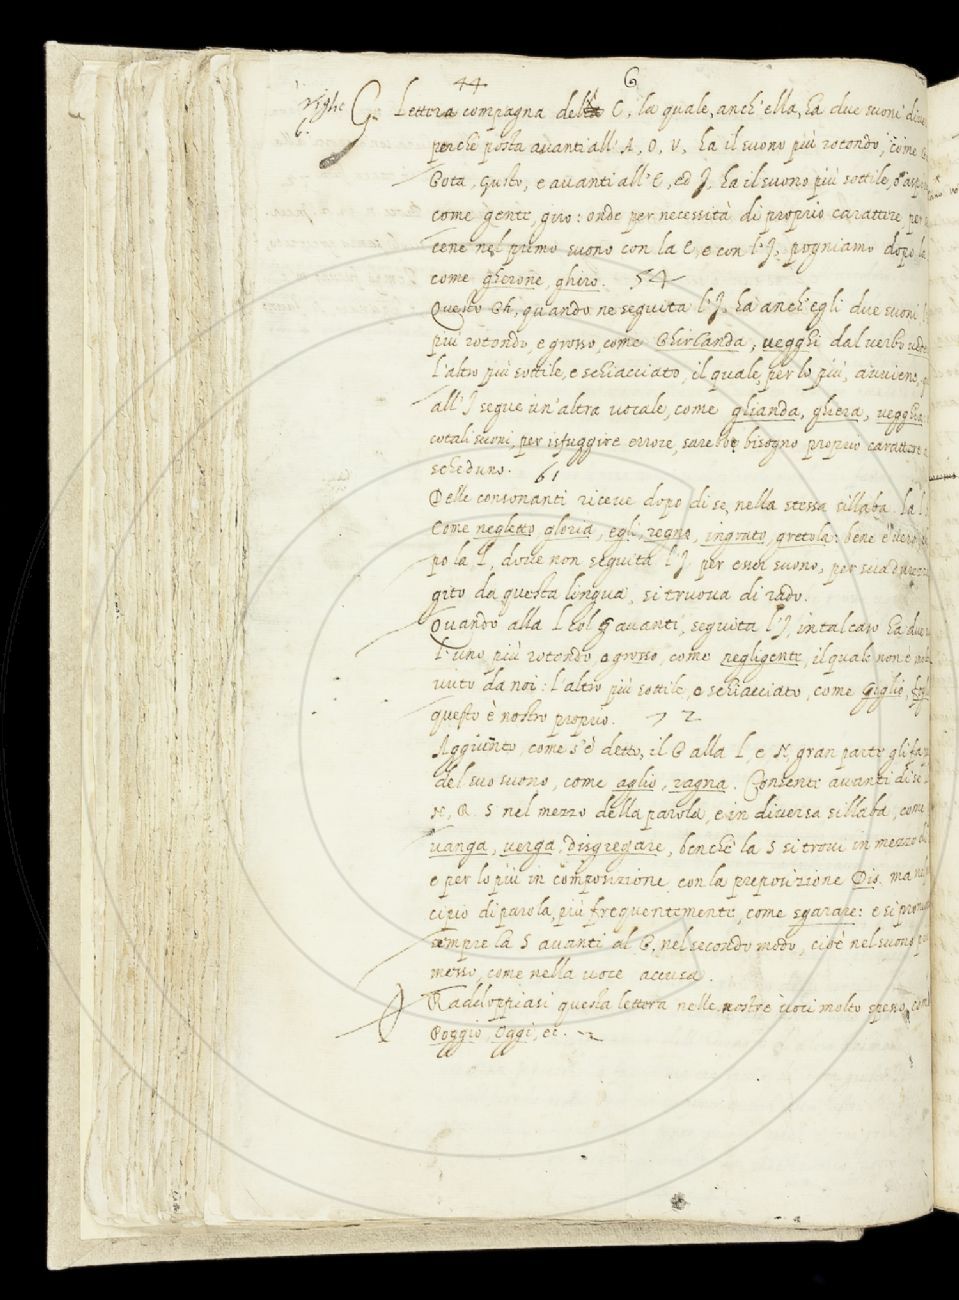 44 G
righe G. Lettera compagna della C, la quale, anch'ella, ha due suoni
perchè posta avanti all'A, O, V, ha il suono più rotondo, come
Gota, Gusto, e avanti all'E, ed J, ha il suono più sottile, o
come gente, giro: onde per necessità di proprio carattere per
cene nel primo suono con la E, e con l'J, pogniamo dopo la
come gherone, ghiro. 54
Questo Gh, quando ne seguita l'J, ha anch'egli due suoni
più rotondo, e grosso, come Ghirlanda, vegghi dal verbo
l'altro più sottile, e schiacciato, il quale, per lo più, avviene,
all'J segue un'altra vocale, come ghianda, ghiera, vegghia
cotali suoni, per isfuggire errore, sarebbe bisogno proprio carattere
scheduno. 61
Delle consonanti riceve dopo di se, nella stessa sillaba, la L
Come negletto, gloria, egli, regno, ingrato, gretola: bene è vero
po la L, dove non seguita l'J per esser suono, per sua
gito da questa lingua, si truova di rado.
Quando alla L col G avanti, seguita l'J, in tal caso ha due
l'uno più rotondo, e grosso, come negligente, il quale non è
vuto da noi: l'altro più sottile, e schiacciato, come Giglio,
questo è nostro proprio. 72
Aggiunto, come s'è detto, il G alla L, e N, gran parte gli fa
del suo suono, come aglio, ragna. Consente avanti di se
N, R. S nel mezzo della parola, e in diversa sillaba, come
vanga, verga, disgregare, benchè la S si trovi in mezzo
e per lo più in composizione, con la preposizione Dis. ma
cipio di parola, più frequentemente, come sgarare: e si
sempre la S avanti al G, nel secondo modo, cioè nel suono
messo, come nella voce accusa.
Raddoppiasi questa lettera nelle nostre voci molto spesso, come
Poggio, Oggi, ec.